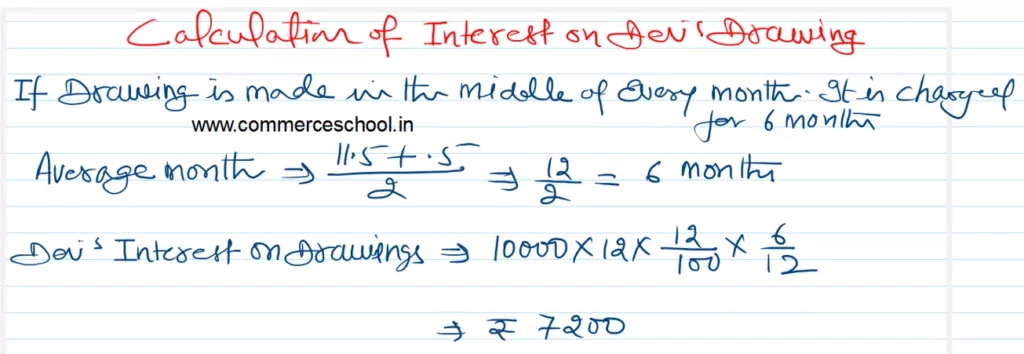 Calculation of Interest on Dev's Drawing
If Drawing is made in the middle of Every month. It is charged
for 6 months
www.commerceschool.in
Average month ⇒ 11.5 + .5 / 2 ⇒ 12/2 = 6 months
Dev's Interest on Drawings ⇒ 10000 × 12 × 12/100 × 6/12
⇒ ₹ 7200